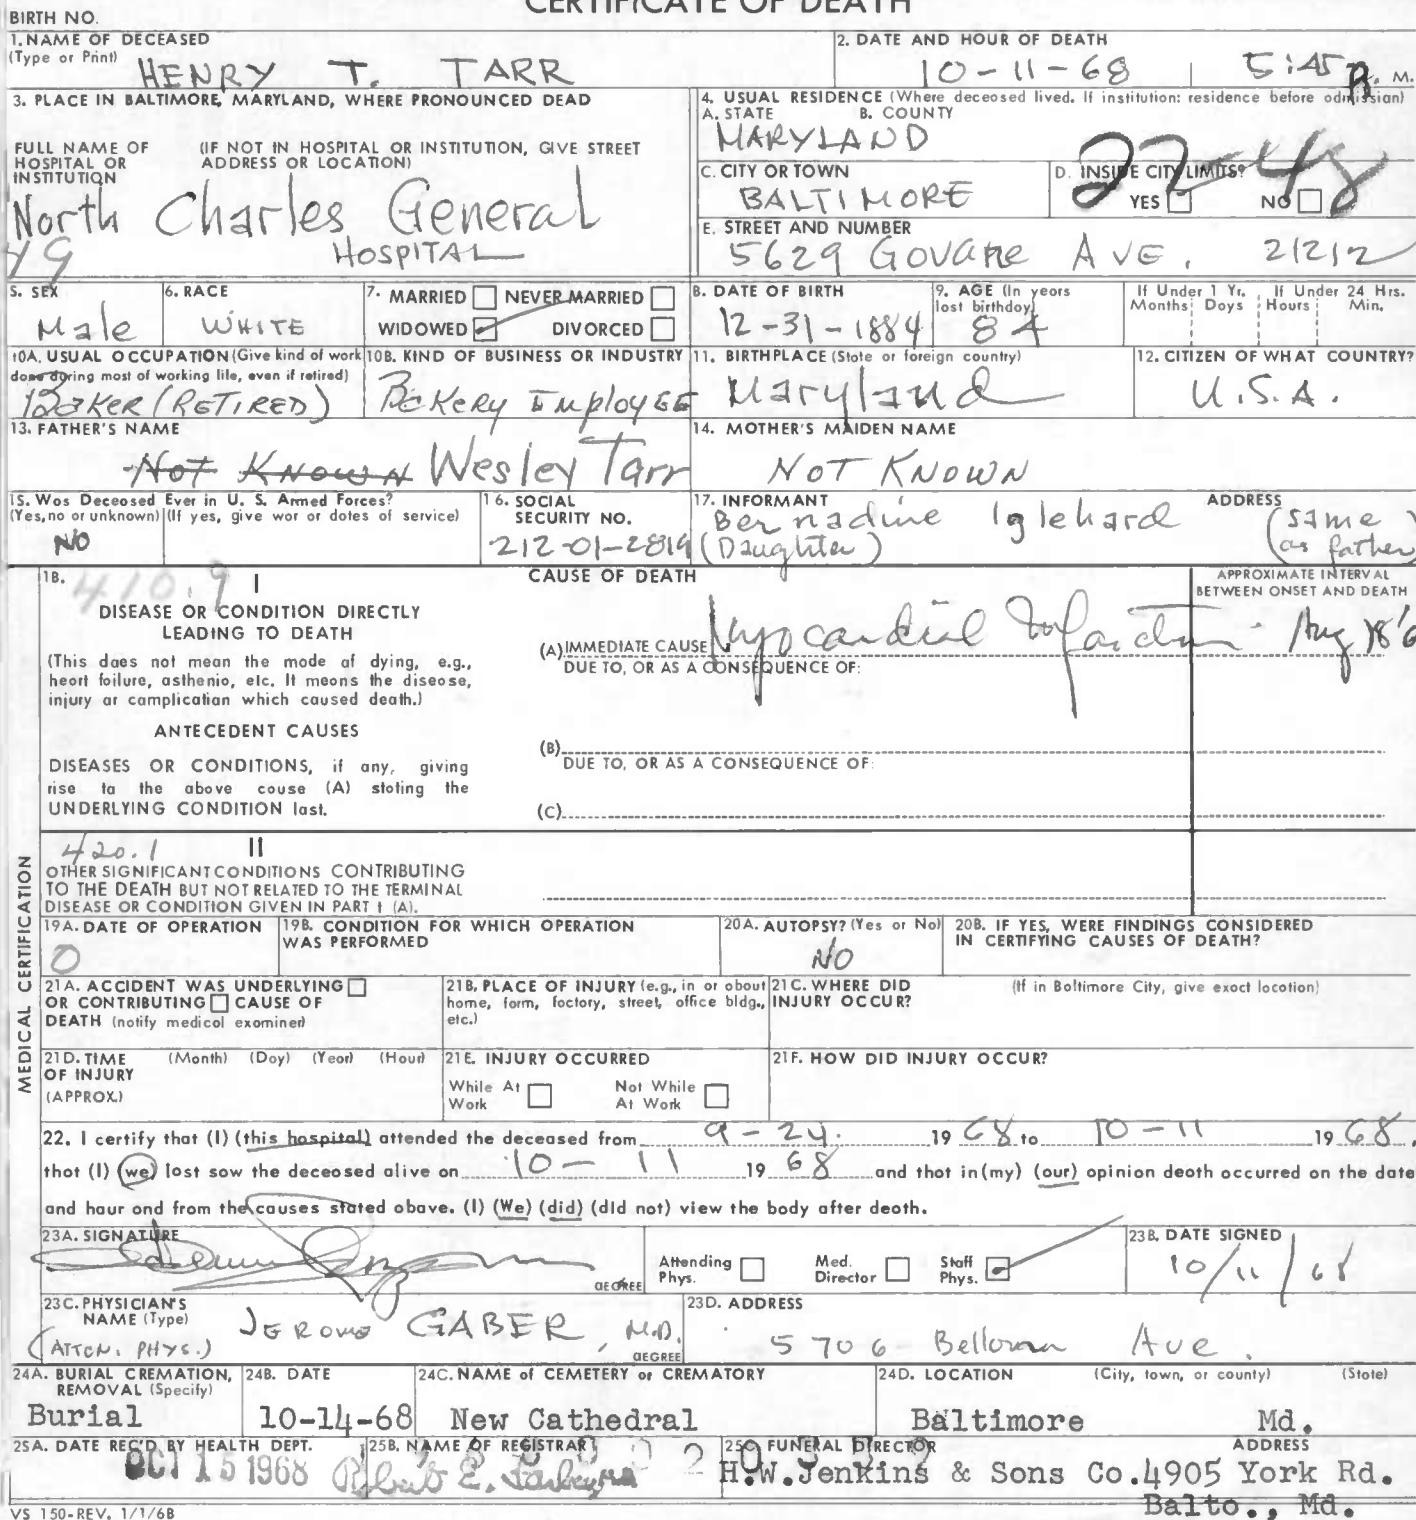 CERTIFICATE OF DEATH
BIRTH NO.
1. NAME OF DECEASED
(Type or Print) HENRY T. TARR
2. DATE AND HOUR OF DEATH
10-11-68 5:45 P. M.
3. PLACE IN BALTIMORE, MARYLAND, WHERE PRONOUNCED DEAD
FULL NAME OF HOSPITAL OR INSTITUTION
(IF NOT IN HOSPITAL OR INSTITUTION, GIVE STREET ADDRESS OR LOCATION)
North Charles General
HOSPITAL
49
4. USUAL RESIDENCE (Where deceased lived. If institution: residence before admission)
A. STATE B. COUNTY
MARYLAND
27 48
C. CITY OR TOWN
BALTIMORE
D. INSIDE CITY LIMITS?
YES NO
E. STREET AND NUMBER
5629 GOVANE AVE. 21212
5. SEX
Male
6. RACE
WHITE
7. MARRIED NEVER MARRIED
WIDOWED DIVORCED
8. DATE OF BIRTH
12-31-1884
9. AGE (In years last birthday)
84
If Under 1 Yr. Months Days
If Under 24 Hrs. Hours Min.
10A. USUAL OCCUPATION (Give kind of work done during most of working life, even if retired)
BaKER (RETIRED)
10B. KIND OF BUSINESS OR INDUSTRY
BaKery EmployEE
11. BIRTHPLACE (State or foreign country)
Maryland
12. CITIZEN OF WHAT COUNTRY?
U.S.A.
13. FATHER'S NAME
Not Known Wesley Tarr
14. MOTHER'S MAIDEN NAME
NOT KNOWN
15. Was Deceased Ever in U. S. Armed Forces?
(Yes, no or unknown) (If yes, give war or dates of service)
NO
16. SOCIAL SECURITY NO.
212-01-2819
17. INFORMANT ADDRESS
Bernadine Iglehard (same
(Daughter) as father)
MEDICAL CERTIFICATION
18. 410.9 I
CAUSE OF DEATH
APPROXIMATE INTERVAL BETWEEN ONSET AND DEATH
DISEASE OR CONDITION DIRECTLY LEADING TO DEATH
(This does not mean the mode of dying, e.g., heart failure, asthenia, etc. It means the disease, injury or complication which caused death.)
(A) IMMEDIATE CAUSE Myocardial Infarction Aug 18'6
DUE TO, OR AS A CONSEQUENCE OF:
ANTECEDENT CAUSES
DISEASES OR CONDITIONS, if any, giving rise to the above cause (A) stating the UNDERLYING CONDITION last.
(B)
DUE TO, OR AS A CONSEQUENCE OF:
(C)
420.1 II
OTHER SIGNIFICANT CONDITIONS CONTRIBUTING TO THE DEATH BUT NOT RELATED TO THE TERMINAL DISEASE OR CONDITION GIVEN IN PART I (A).
19A. DATE OF OPERATION
0
19B. CONDITION FOR WHICH OPERATION WAS PERFORMED
20A. AUTOPSY? (Yes or No)
NO
20B. IF YES, WERE FINDINGS CONSIDERED IN CERTIFYING CAUSES OF DEATH?
21A. ACCIDENT WAS UNDERLYING OR CONTRIBUTING CAUSE OF DEATH (notify medical examiner)
21B. PLACE OF INJURY (e.g., in or about home, farm, factory, street, office bldg., etc.)
21C. WHERE DID INJURY OCCUR?
(If in Baltimore City, give exact location)
21D. TIME OF INJURY (APPROX.)
(Month) (Day) (Year) (Hour)
21E. INJURY OCCURRED
While At Work Not While At Work
21F. HOW DID INJURY OCCUR?
22. I certify that (I) (this hospital) attended the deceased from 9-24. 1968 to 10-11 1968,
that (I) (we) last saw the deceased alive on 10-11 1968 and that in (my) (our) opinion death occurred on the date
and hour and from the causes stated above. (I) (We) (did) (did not) view the body after death.
23A. SIGNATURE
DEGREE
Attending Phys. Med. Director Staff Phys.
23B. DATE SIGNED
10/11/68
23C. PHYSICIAN'S NAME (Type)
JEROME GABER, M.D.
(ATTEN. PHYS.)
DEGREE
23D. ADDRESS
5706 Bellona Ave.
24A. BURIAL CREMATION, REMOVAL (Specify)
Burial
24B. DATE
10-14-68
24C. NAME of CEMETERY or CREMATORY
New Cathedral
24D. LOCATION (City, town, or county) (State)
Baltimore Md.
25A. DATE REC'D BY HEALTH DEPT.
OCT 15 1968
25B. NAME OF REGISTRAR
Robert E. Farber
25C. FUNERAL DIRECTOR ADDRESS
H.W.Jenkins & Sons Co.4905 York Rd.
Balto., Md.
VS 150-REV. 1/1/68